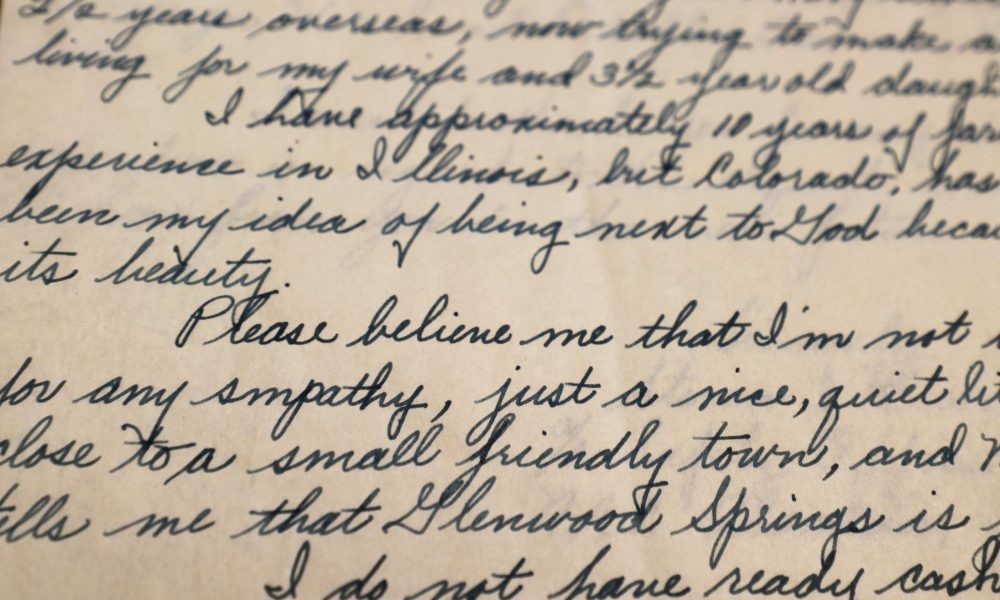 2 1/2 years overseas, now trying to make a
living for my wife and 3 1/2 year old daugh
I have approximately 10 years of far
experience in Illinois, but Colorado, has
been my idea of being next to God becau
its beauty.
Please believe me that I'm not
for any smpathy, just a nice, quiet lit
close to a small friendly town, and
tells me that Glenwood Springs is
I do not have ready cash